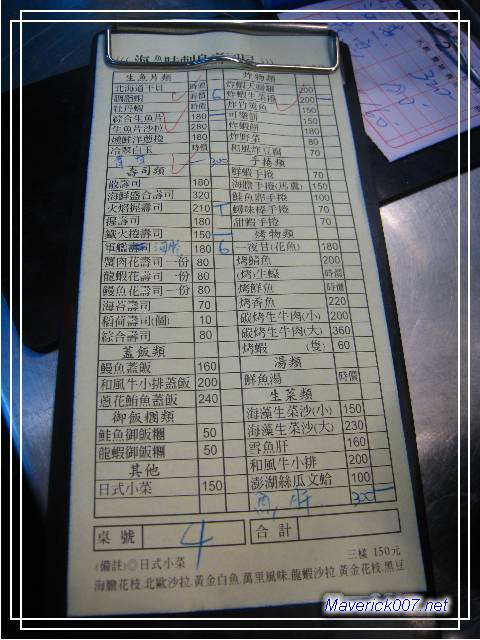 海魚味刺身
生魚片類
北海道干貝 時價
胭脂蝦 時價 6
牡丹蝦 時價
綜合生魚片 180
生魚片沙拉 280
燻鮭洋蔥捲 180
冷製白玉 時價
300
壽司類
散壽司 180
海鮮盛合壽司 320
火焰握壽司 210
握壽司 180
鐵火捲壽司 150
軍艦壽司 180 6
蟹肉花壽司一份 80
龍蝦花壽司一份 80
鰻魚花壽司一份 80
海苔壽司 70
稻荷壽司(個) 10
綜合壽司 80
蓋飯類
鰻魚蓋飯 160
和風牛小排蓋飯 200
蔥花鮪魚蓋飯 240
御飯糰類
鮭魚御飯糰 50
龍蝦御飯糰 50
其他
日式小菜 150
炸物類
炸蝦天婦羅 200
炸蝦生菜捲 200
炸竹筴魚 150
可樂餅 150
炸蝦餅 100
炸野菜 80
和風炸豆腐 70
手捲類
鮮蝦手捲 70
海膽手捲(馬糞) 150
鮭魚卵手捲 100
蟳味棒手捲 70
甜蝦手捲 70
烤物類
一夜甘(花魚) 180
烤鯖魚 200
(烤)生蠔 時價
烤鮮魚 時價
烤香魚 220
碳烤生牛肉(小) 200
碳烤生牛肉(大) 360
烤蝦 (隻) 60
湯類
鮮魚湯 時價
生菜類
海藻生菜沙(小) 150
海藻生菜沙(大) 230
雪魚肝 160
和風牛小排 200
澎湖絲瓜文蛤 100
魚肝 300
桌號 4 合計
(備註)◎日式小菜 三樣 150元
海膽花枝.北歐沙拉.黃金白魚.萬里風味.龍蝦沙拉.黃金花枝.黑豆
Maverick007.net